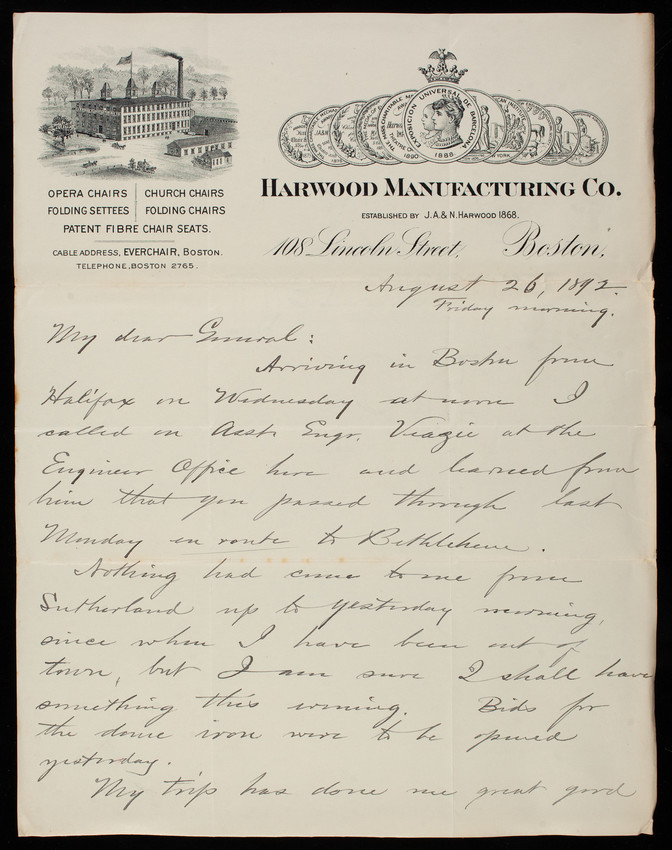 OPERA CHAIRS | CHURCH CHAIRS
FOLDING SETTEES | FOLDING CHAIRS
PATENT FIBRE CHAIR SEATS.
CABLE ADDRESS, EVERCHAIR, BOSTON.
TELEPHONE, BOSTON 2765.
EXPOSICION UNIVERSAL DE BARCELONA
1890 1888
HARWOOD MANUFACTURING CO.
ESTABLISHED BY J.A. & N. HARWOOD 1868.
108 Lincoln Street, Boston,
August 26, 1892.
Friday morning.
My dear General:
Arriving in Boston from
Halifax on Wednesday at noon I
called on Asst. Engr. Viazie at the
Engineer Office here and learned from
him that you passed through last
Monday en route to Bethlehem.
Nothing had come to me from
Sutherland up to yesterday morning,
since when I have been out of
town, but I am sure I shall have
something this evening. Bids for
the dome iron were to be opened
yesterday.
My trip has done me great good